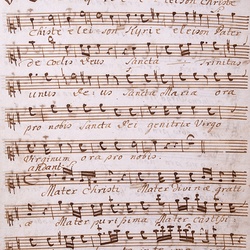 eleison Christe
Christe eleison Kyrie eleison Pater
de coelis Deus Sancta Trinitas
unus Deus Sancta Maria ora
pro nobis Sancta Dei genitrix Virgo
Virginum ora pro nobis.
Andante
Mater Christi Mater divinae grati
ae Mater purissima Mater castissi